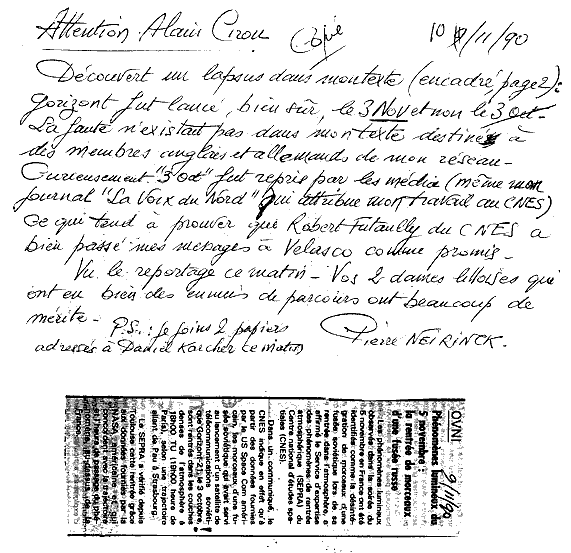 Attention Alain Cirou Copie 10/11/90
Découvert un lapsus dans mon texte (encadré page 2):
Gorizont fut lancé, bien sûr, le 3 Nov et non le 3 Oct-
La faute n'existait pas dans mon texte destiné à
des membres anglais et allemands de mon réseau-
Curieusement "3 Oct" fut repris par les média (même mon
journal "La Voix du Nord" qui attribue mon travail au CNES)
Ce qui tend à prouver que Robert Futaully du CNES a
bien passé mes messages à Velasco comme promis-
Vu le reportage ce matin- Vos 2 dames lilloises qui
ont eu bien des ennuis de parcours ont beaucoup de
mérite- P.S.: je joins 2 papiers
adressés à Daniel Karcher ce matin
Pierre NEIRINCK.
9/11/90
OVNI
Phénomènes lumineux du
5 novembre :
la rentrée de morceaux
d'une fusée russe
Les phénomènes lumineux
observés dans la soirée du
5 novembre en France ont été
identifiés comme la désinté-
gration de morceaux d'une
fusée soviétique lors de sa
rentrée dans l'atmosphère, a
affirmé le Service d'expertise
des phénomènes de rentrée
atmosphérique (SEPRA) du
Centre national d'études spa-
tiales (CNES).
Dans un communiqué, le
CNES indique en effet qu'à
partir des données fournies
par le US Space Com améri-
cain, les morceaux d'une fu-
sée soviétique qui avait servi
au lancement d'un satellite de
télécommunications soviéti-
que Gorizont-21, le 3 octobre,
sont rentrés dans les couches
denses de l'atmosphère à
18h00 TU (19h00 heure de
Paris), selon une trajectoire
allant de Pau à Strasbourg.
Le SEPRA a vérifié depuis
Toulouse cette rentrée grâce
aux données fournies par la
NASA américaine et qui
concordent avec la trajectoire
et l'heure de passage du phé-
nomène
France.